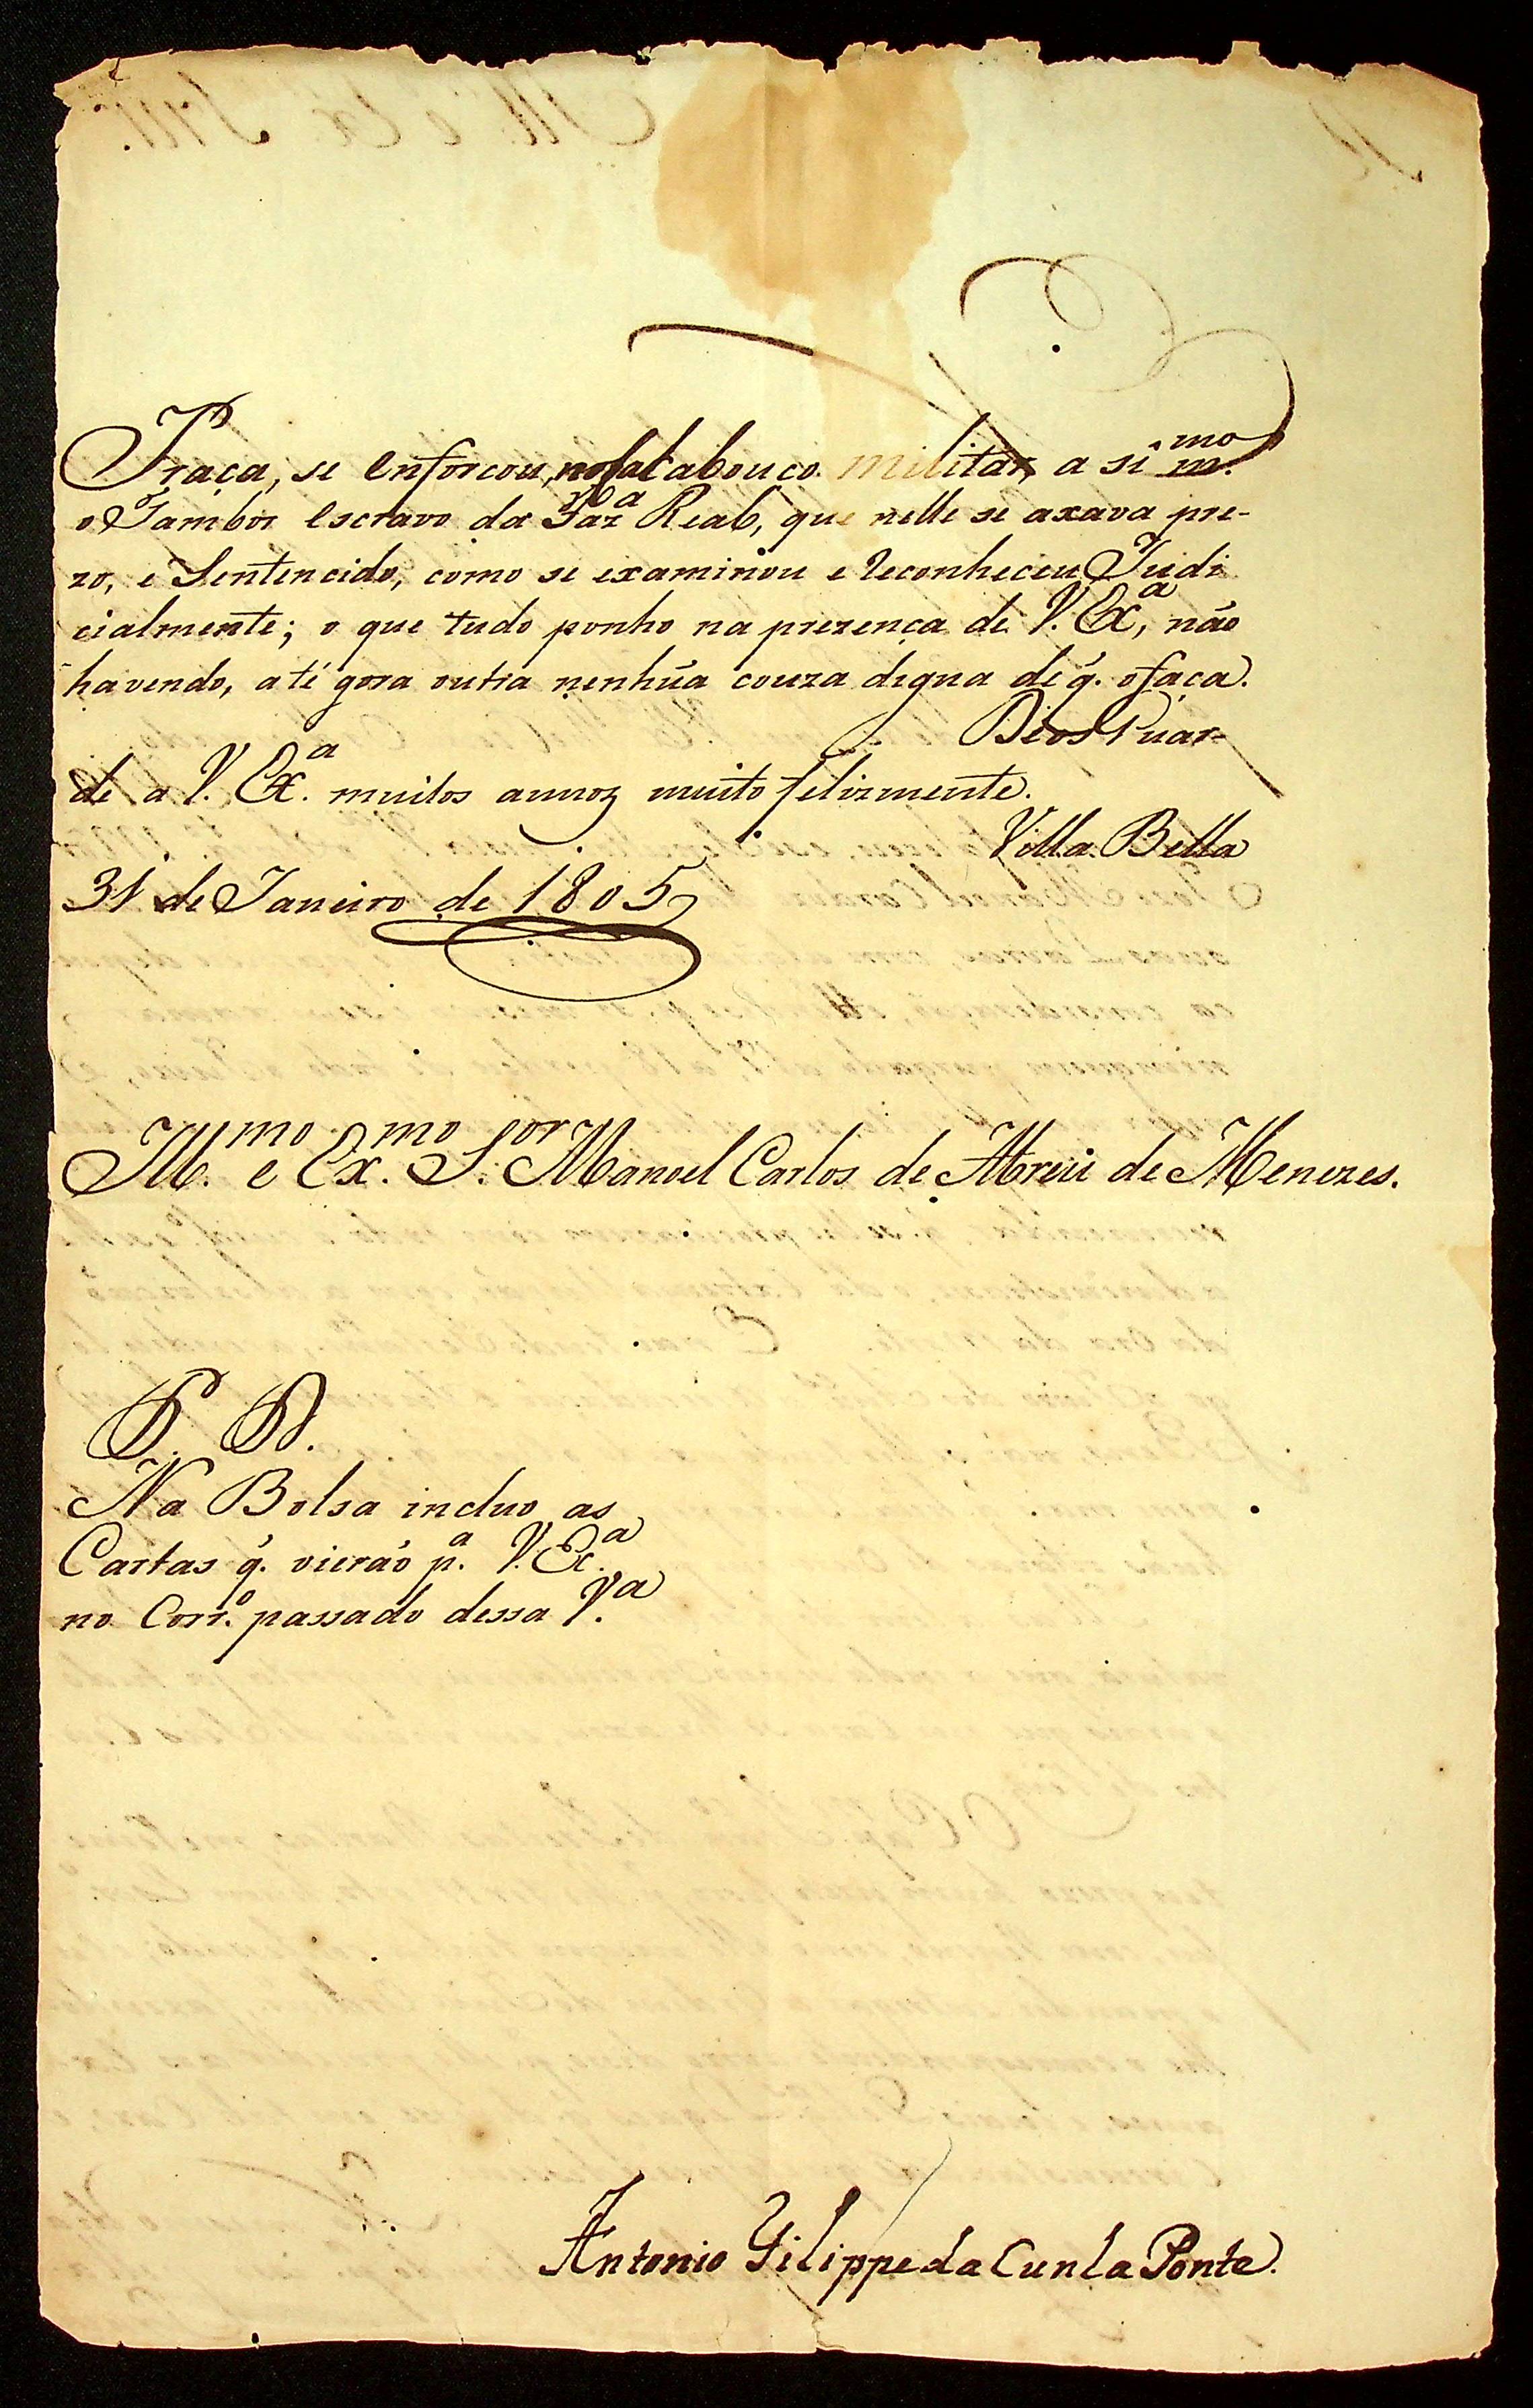 Praça, se enforcou, no Calabouço militar, a si m.mo
o Tambor escravo da Faz.a Real, que nelle se axava pre-
zo, e Sentenciado, como se examinou e reconheceu Judi
cialmente; o que tudo ponho na prezença de V. Ex.a, não
havendo, até gora outra nenhũa couza digna de q. o faça.
Deos Guar-
de a V. Ex.a muitos annoz muito felizmente.
Villa Bella
31 de Janeiro de 1805
Ill.mo e Ex.mo S.or Manoel Carlos de Abreu de Menezes.
P. S.
Na Bolsa incluo as
Cartas q. vierão p.a V. Ex.a
no Corr.o passado dessa V.a
Antonio Filippe da Cunha Ponte.